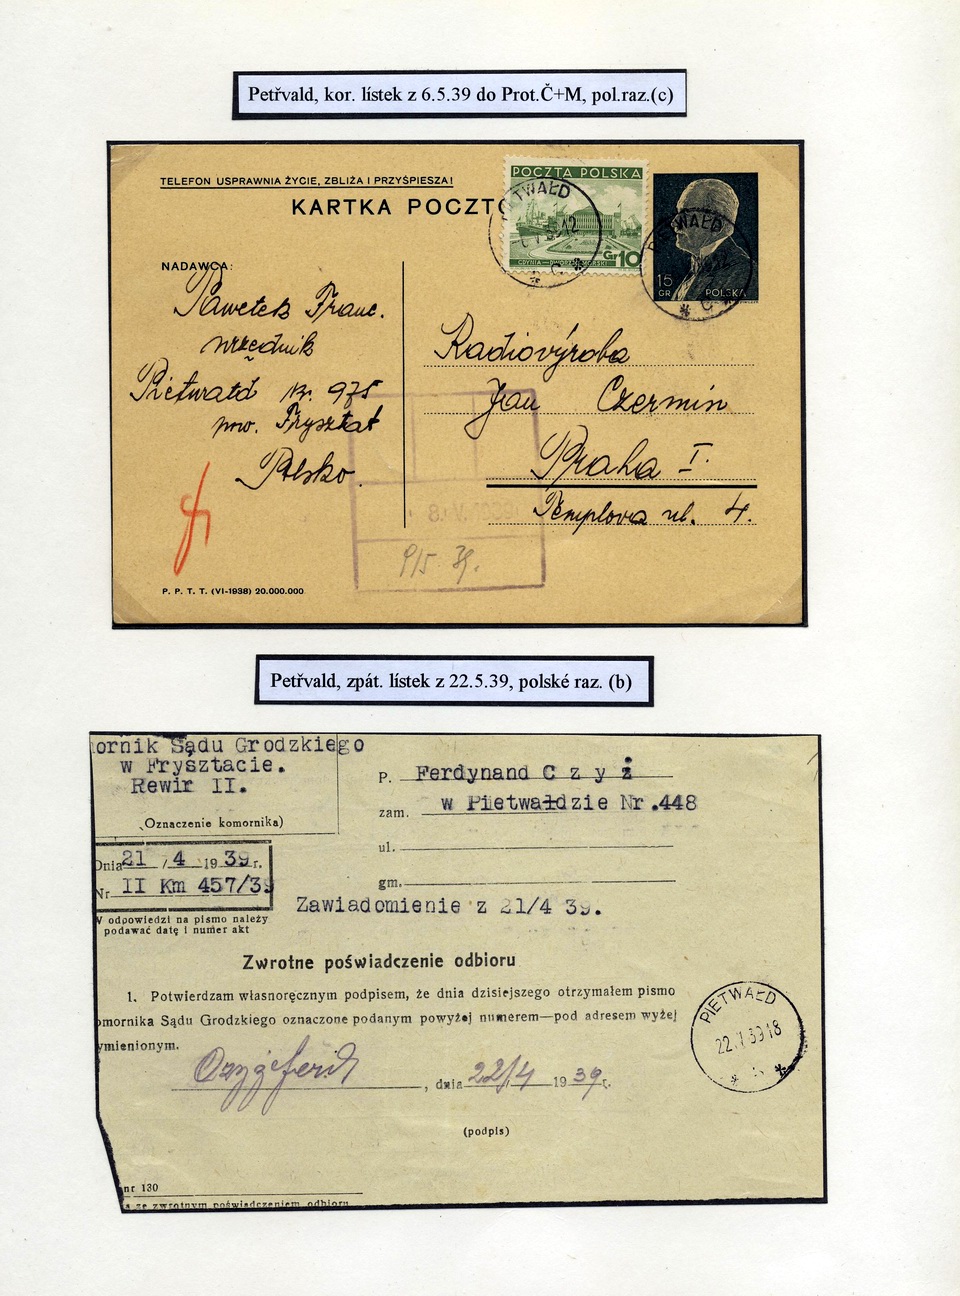 Petřvald, kor. lístek z 6.5.39 do Prot.Č+M, pol.raz.(c)
TELEFON USPRAWNIA ŻYCIE, ZBLIŻA I PRZYŚPIESZA!
KARTKA POCZTO
POCZTA POLSKA
GDYNIA—DWORZEC MORSKI
Gr 10
PIETWAŁD
C
15
GR
POLSKA
PIETWAŁD
C
NADAWCA:
Pawełek Franc.
urzędnik
Pietwałd Nr. 975
pow. Frysztat
Polsko.
Radiovýroba
Jan Czermin
Praha I.
Templova ul. 4.
9/5. 39.
P. P. T. T. (VI-1938) 20.000.000
Petřvald, zpát. lístek z 22.5.39, polské raz. (b)
ornik Sądu Grodzkiego
w Frysztacie.
Rewir II.
(Oznaczenie komornika)
P. Ferdynand C z y ż
zam. w Pietwałdzie Nr.448
ul.
gm.
Dnia 21 / 4 1939 r.
Nr II Km 457/39
W odpowiedzi na pismo należy
podawać datę i numer akt
Zawiadomienie z 21/4 39.
Zwrotne poświadczenie odbioru
1. Potwierdzam własnoręcznym podpisem, że dnia dzisiejszego otrzymałem pismo
omornika Sądu Grodzkiego oznaczone podanym powyżej numerem—pod adresem wyżej
ymienionym.
PIETWAŁD
, dnia 22/4 1939 r.
(podpis)
nr 130
a ze zwrotnym poświadczeniem odbioru